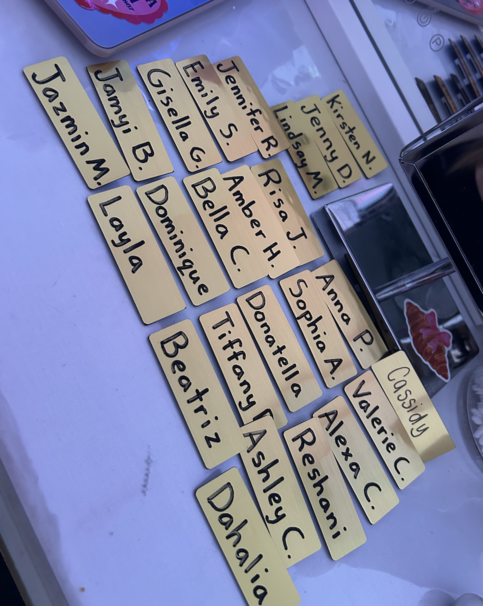 Jazmin M.
Jamyi B.
Gisella G.
Emily S.
Jennifer R.
Lindsay M.
Jenny D.
Kirsten N.
Layla
Dominique
Bella C.
Amber H.
Risa J.
Beatriz
Tiffany
Donatella
Sophia A.
Anna P.
Dahalia
Ashley C.
Reshani
Alexa C.
Valerie C.
Cassidy